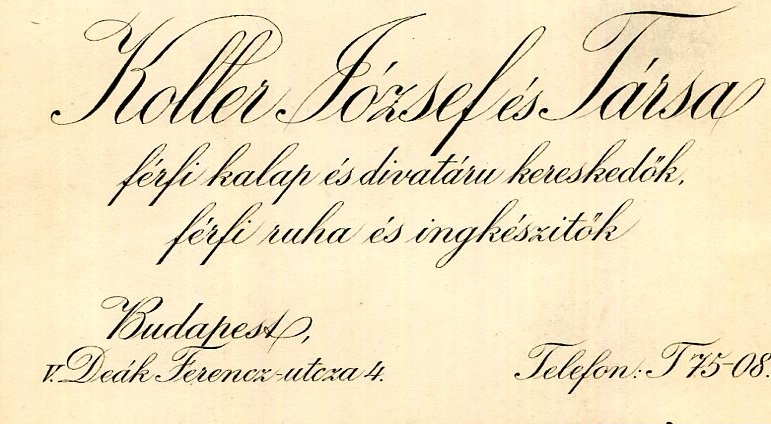 Koller József és Társa
férfi kalap és divatáru kereskedők,
férfi ruha és ingkészitők
Budapest,
V. Deák Ferencz-utcza 4.
Telefon: T 75-08.